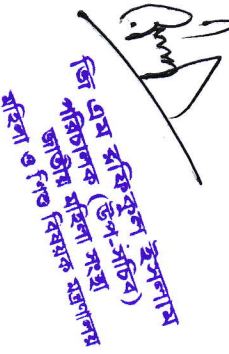 জি এম রফিকুল ইসলাম
পরিচালক (উপ-সচিব)
জাতীয় মহিলা সংস্থা
মহিলা ও শিশু বিষয়ক মন্ত্রণালয়